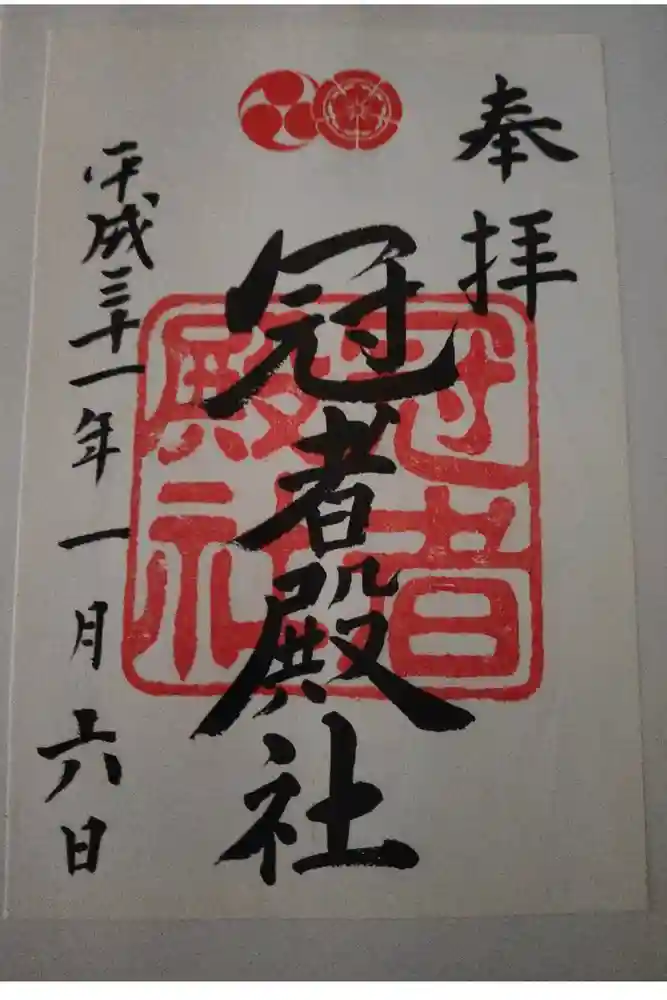 奉拝
冠者殿社
冠者
殿社
平成三十一年一月六日